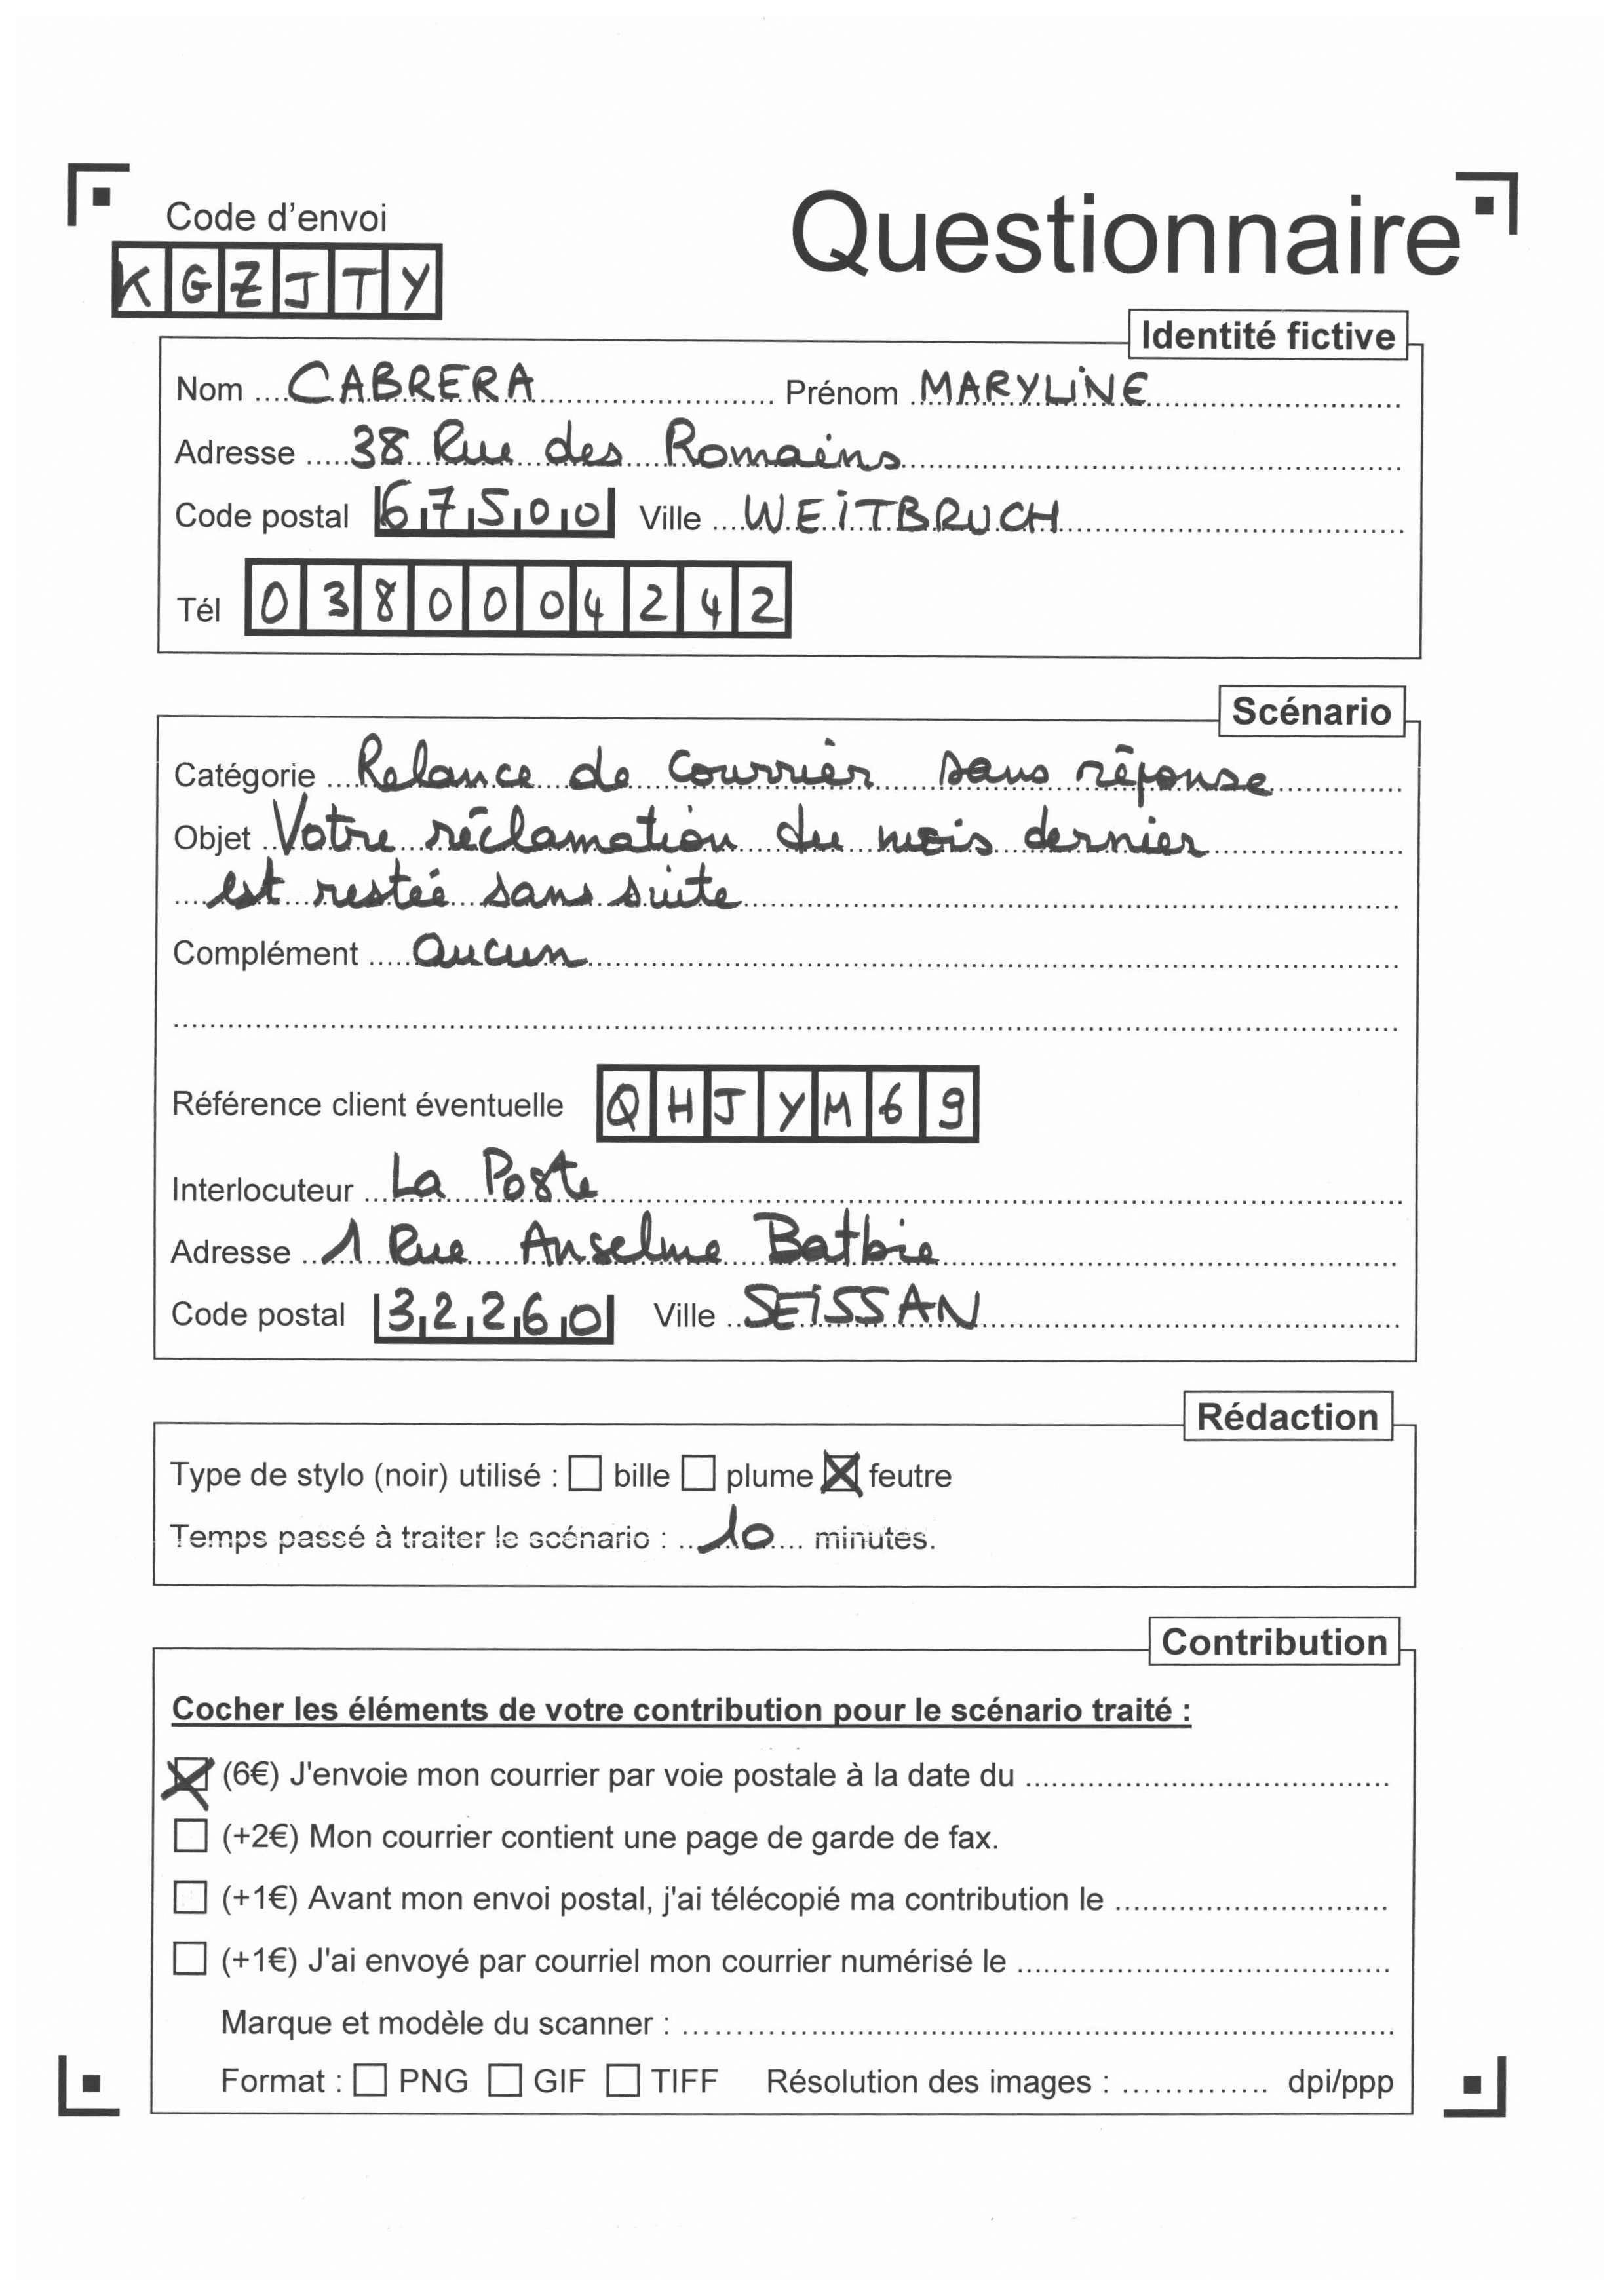 Code d'envoi
Questionnaire
KGZJTY
Identité fictive
Nom CABRERA Prénom MARYLINE
Adresse 38 Rue des Romains
Code postal 67500 Ville WEITBRUCH
Tél 0380004242
Scénario
Catégorie Relance de courrier sans réponse
Objet Votre réclamation du mois dernier
est restée sans suite
Complément aucun
Référence client éventuelle QHJYM69
Interlocuteur La Poste
Adresse 1 Rue Anselme Batbie
Code postal 32260 Ville SEISSAN
Rédaction
Type de stylo (noir) utilisé : bille plume feutre
Temps passé à traiter le scénario : 10 minutes.
Contribution
Cocher les éléments de votre contribution pour le scénario traité :
(6€) J'envoie mon courrier par voie postale à la date du
(+2€) Mon courrier contient une page de garde de fax.
(+1€) Avant mon envoi postal, j'ai télécopié ma contribution le
(+1€) J'ai envoyé par courriel mon courrier numérisé le
Marque et modèle du scanner :
Format : PNG GIF TIFF Résolution des images : dpi/ppp